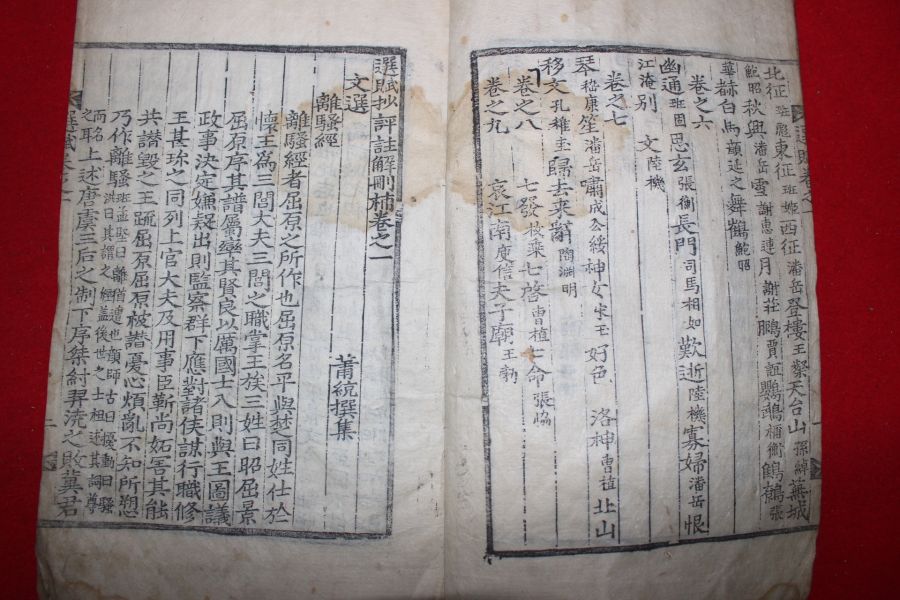 北征 班彪 東征 班姬 西征 潘岳 登樓 王粲 天台山 孫綽 蕪城
鮑昭 秋興 潘岳 雪 謝惠連 月 謝莊 鵬 賈誼 鸚鵡 禰衡 鷦鷯 張
華 赭白馬 顔延之 舞鶴 鮑昭
卷之六
幽通 班固 思玄 張衡 長門 司馬相如 歎逝 陸機 寡婦 潘岳 恨
江淹 別 文 陸機
卷之七
琴 嵇康 笙 潘岳 嘯 成公綏 神女 宋玉 好色 洛神 曹植 北山
移文 孔稚圭 歸去来辭 陶淵明
卷之八 七發 枚乘 七啓 曹植 七命 張協
卷之九 哀江南 庾信 夫子廟 王勃
選賦抄評註解刪補卷之一
文選 莆統撰集
離騷經
離騷經者屈原之所作也屈原名平與楚同姓仕於
懷王爲三閭大夫三閭之職掌王族三姓曰昭屈景
屈原序其譜屬率其賢良以厲國士入則與王圖議
政事決定嫌疑出則監察群下應對諸侯謀行職修
王甚珎之同列上官大夫及用事臣靳尚妬害其能
共譖毀之王疏屈原屈原被譖憂心煩亂不知所愬
乃作離騷 班孟堅曰離猶遭也顔師古曰擾動曰騷
洪曰其謂之經盖後世之士祖述其詞尊
而名之耳 上述唐虞三后之制下序桀紂羿澆之敗冀君